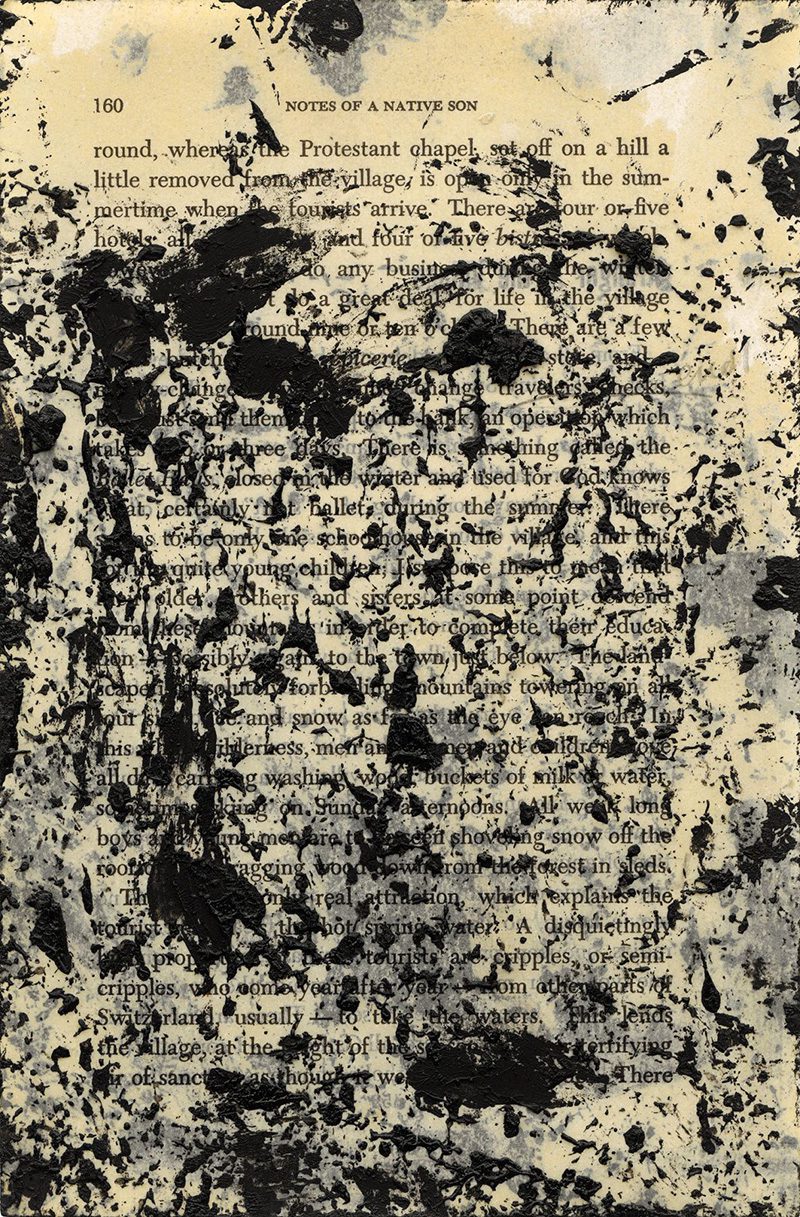 160 NOTES OF A NATIVE SON
round, whereas the Protestant chapel, set off on a hill a
little removed from the village, is open only in the sum-
mertime when the tourists arrive. There are four or five
hotels, all and four or five
do any business during the winter
do a great deal, for life in the village
round nine or ten o'clock. There are a few
épicerie, store, and
change travelers' checks,
them to the bank, an operation which
takes two or three days. There is something called the
Ballet Haus, closed in the winter and used for God knows
what, certainly not ballet, during the summer. There
seems to be only one schoolhouse in the village, and this
for the quite young children; I suppose this to mean that
their older brothers and sisters at some point descend
from these mountains in order to complete their educa-
tion — possibly, again, to the town just below. The land-
scape is absolutely forbidding, mountains towering on all
four sides, ice and snow as far as the eye can reach. In
this white wilderness, men and women and children move
all day, carrying washing, wood, buckets of milk or water,
sometimes skiing on Sunday afternoons. All week long
boys and young men are to be seen shoveling snow off the
dragging wood down from the forest in sleds.
The only real attraction, which explains the
tourist is the hot spring water. A disquietingly
high proportion of these tourists are cripples, or semi-
cripples, who come year after year — from other parts of
Switzerland, usually — to take the waters. This lends
the village, at the height of the terrifying
air of sanctity, as though it were There